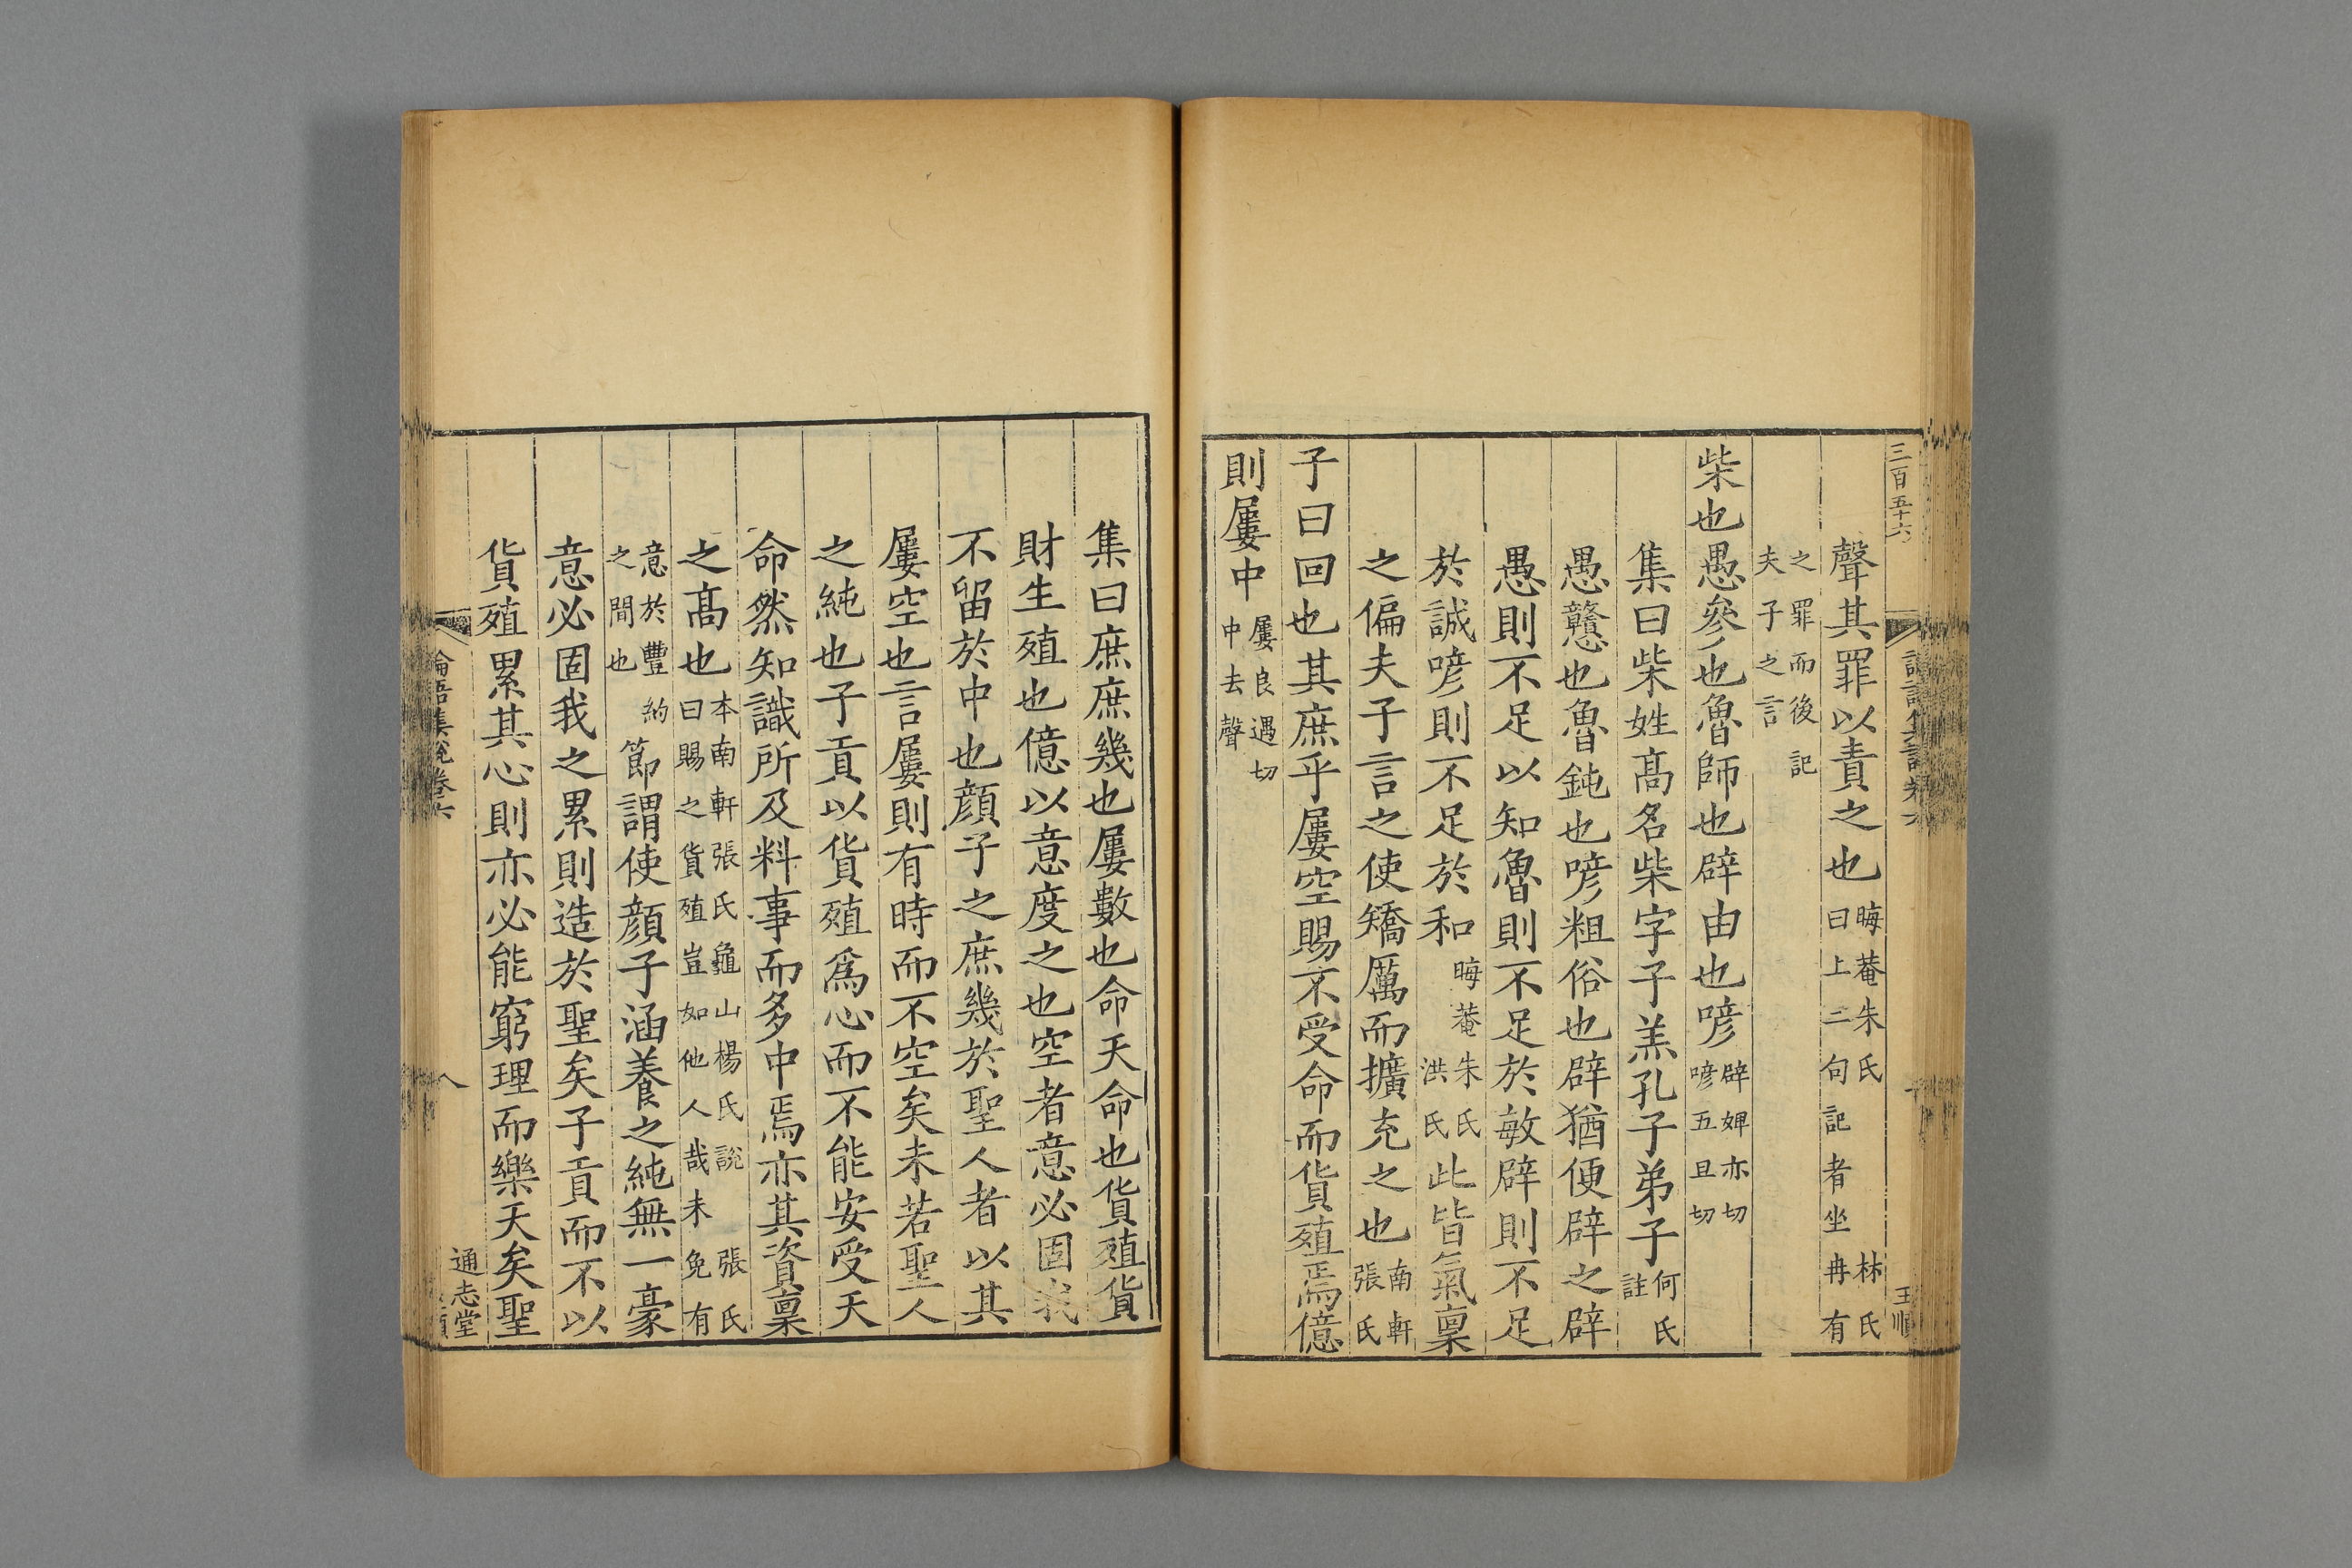 三百五十六
王順
聲其罪以責之也晦菴朱氏林氏曰上二句記者坐冉有
之罪而後記夫子之言
柴也愚參也魯師也辟由也喭辟婢亦切喭五旦切
集曰柴姓髙名柴字子羔孔子弟子何氏註
愚戇也魯鈍也喭粗俗也辟猶便辟之辟
愚則不足以知魯則不足於敏辟則不足
於誠喭則不足於和晦菴朱氏洪氏此皆氣稟
之偏夫子言之使矯厲而擴充之也南軒張氏
子曰回也其庶乎屢空賜不受命而貨殖焉億
則屢中屢良遇切中去聲
集曰庶庶幾也屢數也命天命也貨殖貨
財生殖也億以意度之也空者意必固我
不留於中也顔子之庶幾於聖人者以其
屢空也言屢則有時而不空矣未若聖人
之純也子貢以貨殖爲心而不能安受天
命然知識所及料事而多中焉亦其資稟
之髙也本南軒張氏龜山楊氏說張氏曰賜之貨殖豈如他人哉未免有
意於豐約之間也節謂使顔子涵養之純無一豪
意必固我之累則造於聖矣子貢而不以
貨殖累其心則亦必能窮理而樂天矣聖
論語集說卷六
八
通志堂